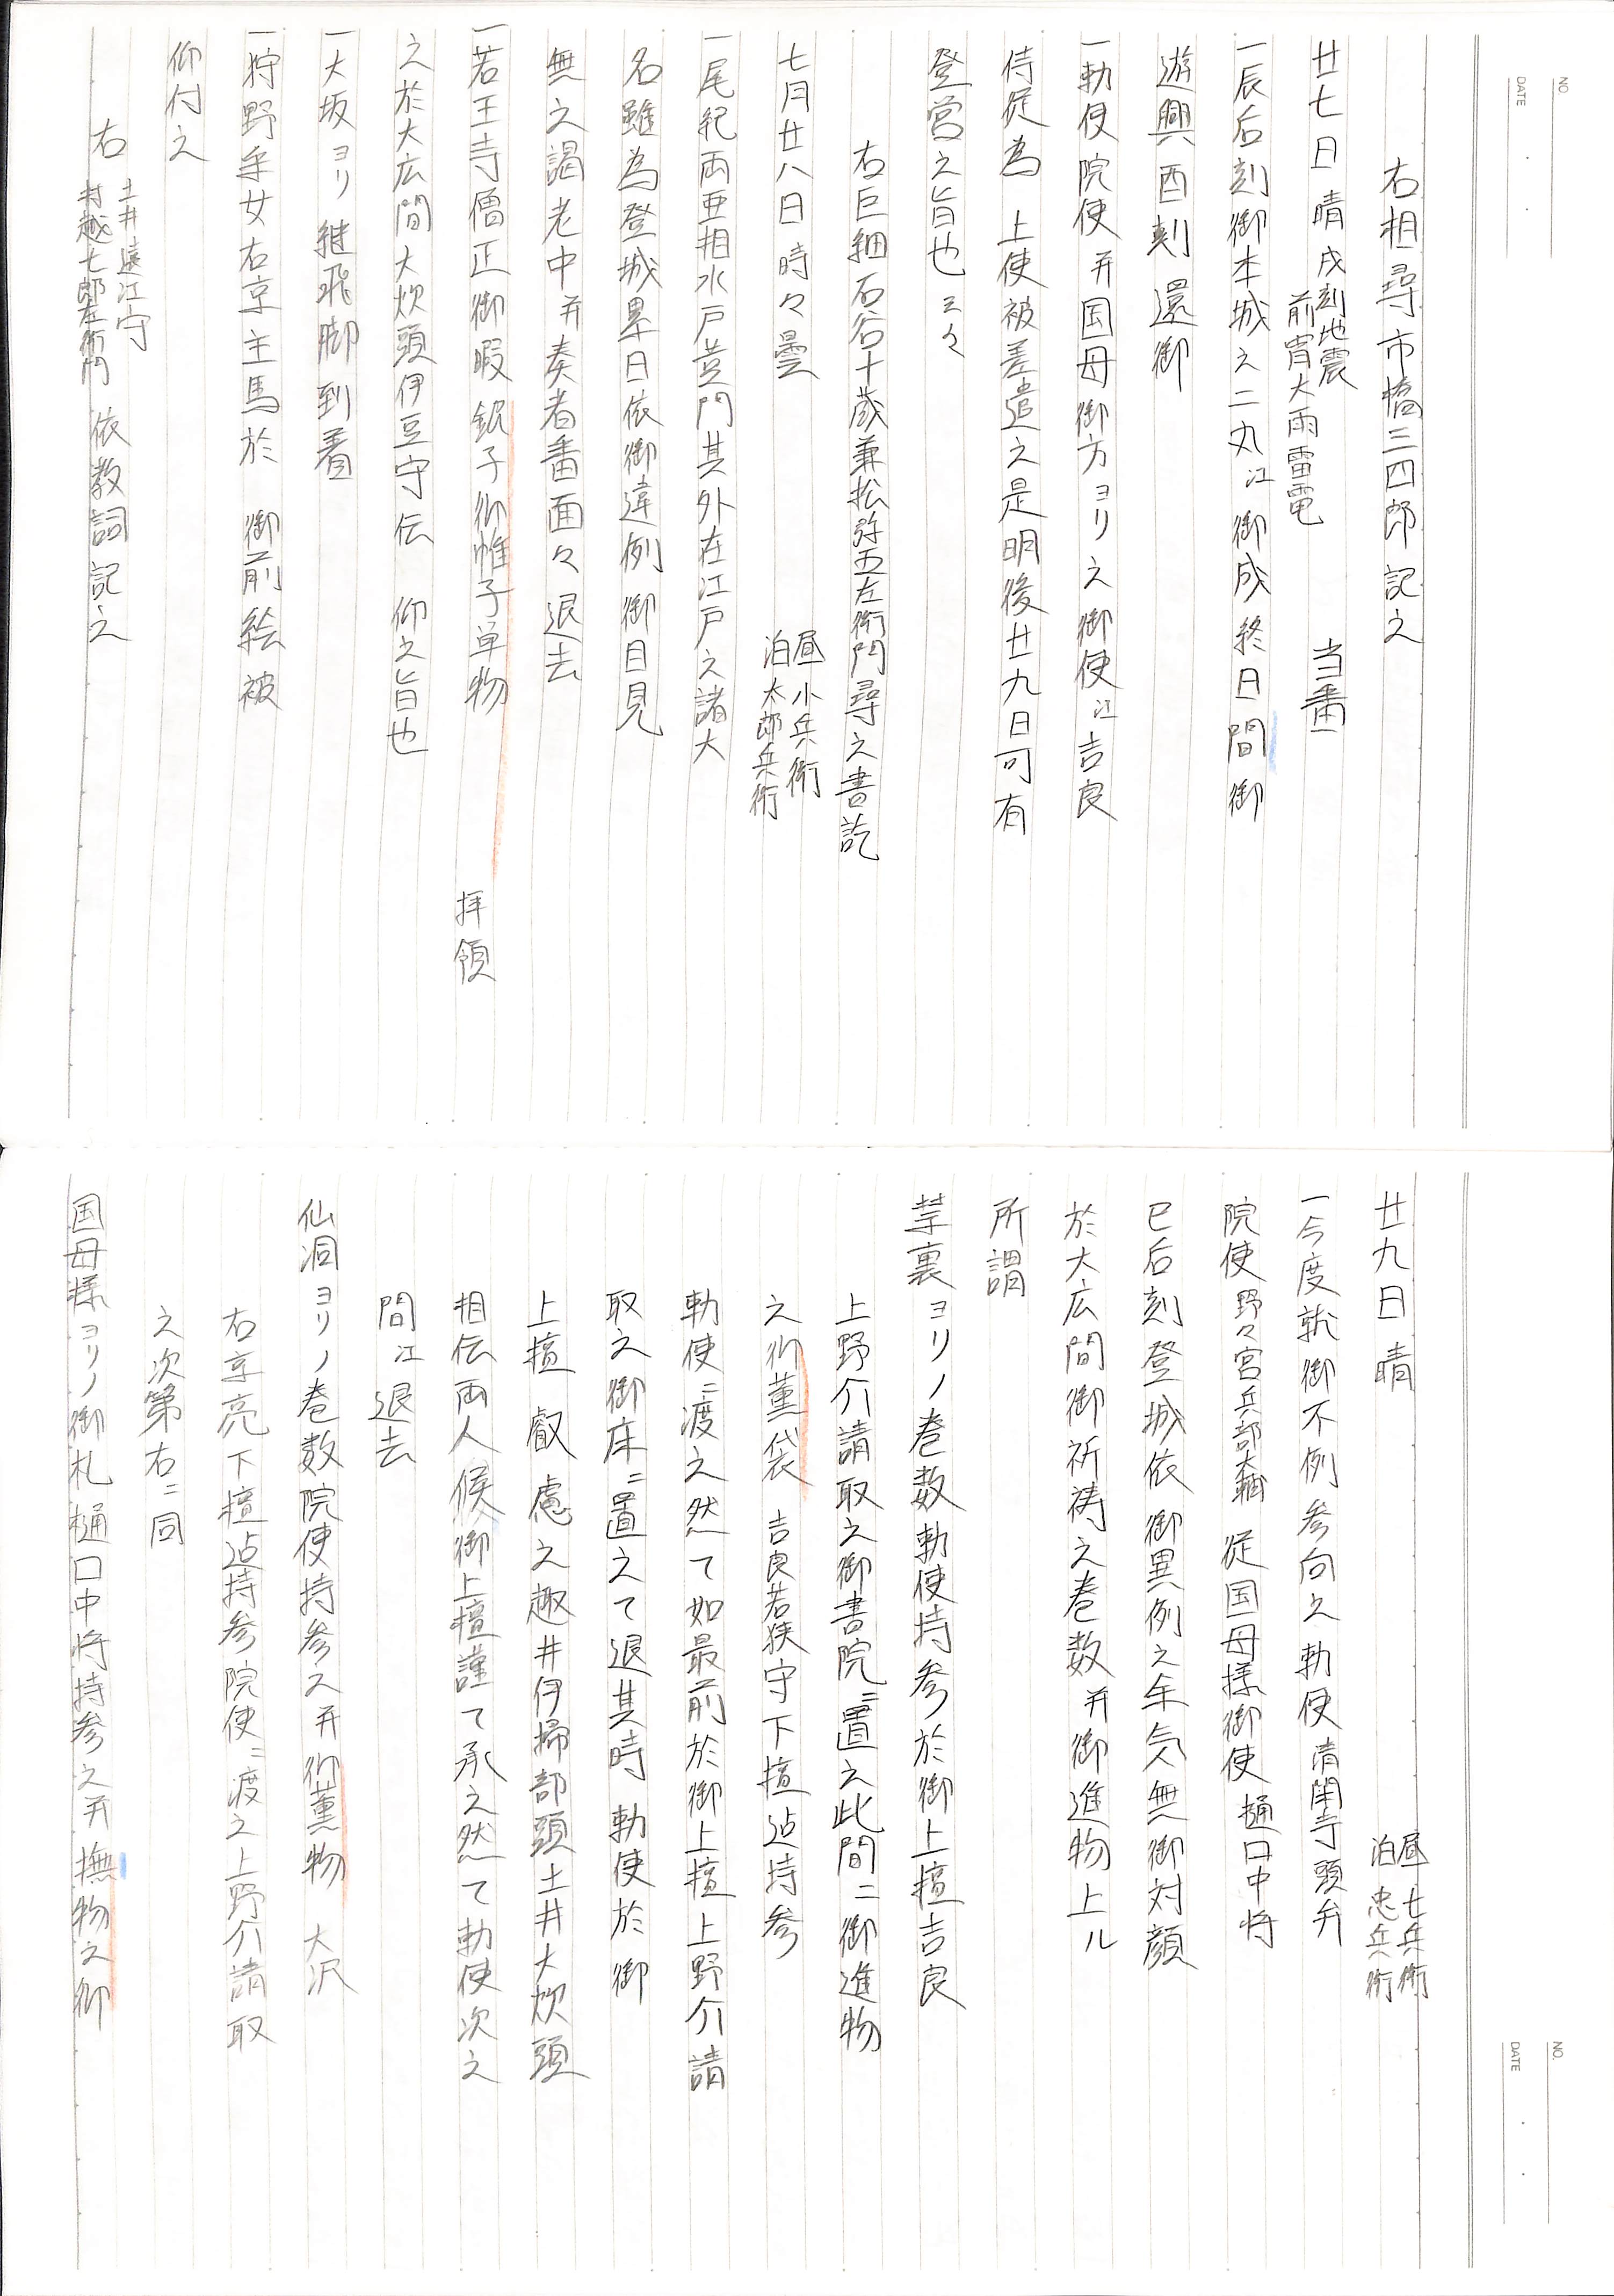 NO
DATE
右相尋市橋三四郎記之
廿七日 晴 戌刻地震 前宵大雨雷電 当番
一辰后刻御本城之二丸江 御成終日間御
遊興酉刻 還御
一勅使院使并国母御方ヨリ之御使江吉良
侍従為 上使被差遣之是明後廿九日可有
登営之旨也云々
右巨細石谷十蔵兼松弥五左衛門尋之書訖
七月廿八日 時々曇 昼 小兵衛 泊 太郎兵衛
一尾紀両亜相水戸黄門其外在江戸之諸大
名雖為登城累日依御違例御目見
無之謁老中并奏者番面々退去
一若王寺僧正御暇 銀子御帷子単物 拝領
之於大広間大炊頭伊豆守伝 仰之旨也
一大坂ヨリ継飛脚到着
一狩野采女右京主馬於 御前絵被
仰付之
右 土井遠江守 村越七郎左衛門 依教詞記之
NO.
DATE
廿九日 晴 昼 七兵衛 泊 忠兵衛
一今度就御不例参向之勅使 清閑寺頭弁
院使 野々宮兵部大輔 従国母様御使 樋口中将
巳后刻登城依御異例之余気無御対顔
於大広間御祈祷之巻数并御進物上ル
所謂
禁裏ヨリノ巻数勅使持参於御上檀吉良
上野介請取之御書院ニ置之此間ニ御進物
之御薫袋 吉良若狭守下檀迠持参
勅使ニ渡之然て如最前於御上檀上野介請
取之御床ニ置之て退其時 勅使於御
上檀 叡慮之趣井伊掃部頭土井大炊頭
相伝両人候御上檀謹て承之然て勅使次之
間江退去
仙洞ヨリノ巻数院使持参之并御薫物 大沢
右京亮下檀迠持参院使ニ渡之上野介請取
之次第右ニ同
国母様ヨリノ御札樋口中将持参之并撫物之御